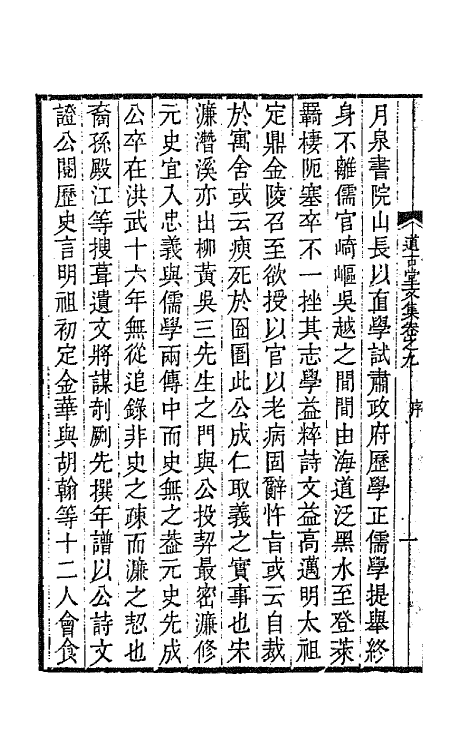 道古堂文集卷之九 序 一
月泉書院山長以直學試肅政府歷學正儒學提舉終
身不離儒官崎嶇吳越之間間由海道泛黑水至登萊
羈棲阨塞卒不一挫其志學益粹詩文益高邁明太祖
定鼎金陵召至欲授以官以老病固辭忤旨或云自裁
於寓舍或云瘐死於囹圄此公成仁取義之實事也宋
濂潛溪亦出柳黃吳三先生之門與公投契最密濂修
元史宜入忠義與儒學兩傳中而史無之葢元史先成
公卒在洪武十六年無從追錄非史之疎而濂之恝也
裔孫殿江等搜葺遺文將謀剞劂先撰年譜以公詩文
證公閱歷史言明祖初定金華與胡翰等十二人會食